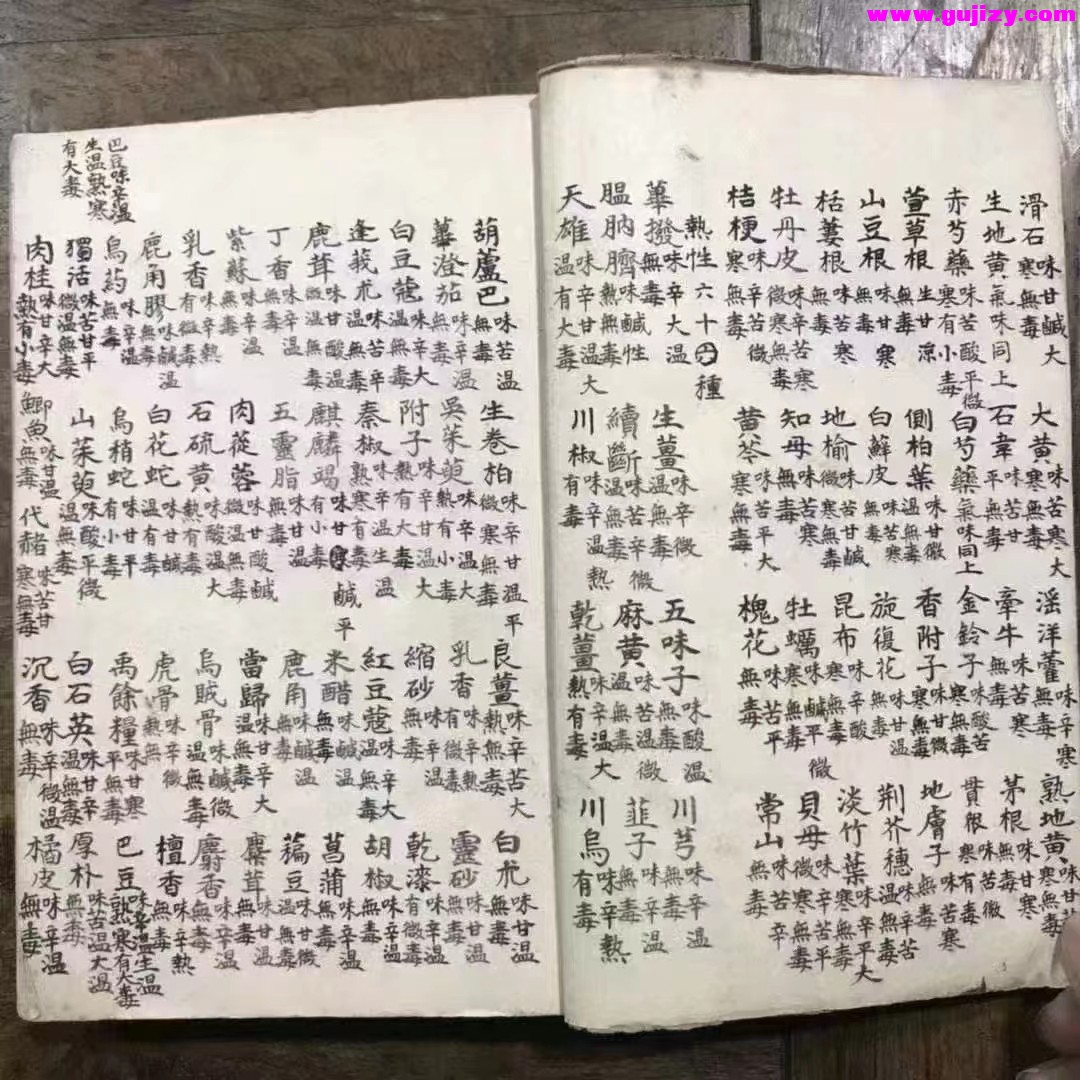 滑石 味甘鹹大寒無毒 大黃 味苦寒大寒無毒 淫洋藿 味辛寒無毒 熟地黃 味甘苦寒無毒
生地黃 氣味同上 石韋 味苦甘平無毒 牽牛 味苦寒無毒 茅根 味甘寒無毒
赤芍藥 味苦酸平微寒有小毒 白芍藥 氣味同上 金鈴子 味酸苦寒無毒 貫根 味苦微寒有毒
萱草根 生甘涼無毒 側柏葉 味甘微温無毒 香附子 味甘微寒無毒 地膚子 味苦寒無毒
山豆根 味甘寒無毒 白蘚皮 味苦寒無毒 旋復花 味甘温無毒 荆芥穗 味辛苦温無毒
栝蔞根 味苦寒無毒 地榆 味甘鹹微寒無毒 昆布 味辛酸寒無毒 淡竹葉 味辛平大寒無毒
牡丹皮 味辛苦寒微寒無毒 知母 味苦寒無毒 牡蠣 味鹹平微寒無毒 貝母 味辛苦平微寒無毒
桔梗 味辛苦微寒有毒 黃芩 味苦平大寒無毒 槐花 味苦平無毒 常山 味辛苦無毒
熱性六十種
蓽撥 味辛大温無毒 生薑 味辛微温無毒 五味子 味酸温無毒 川芎 味辛温無毒
膃肭臍 味鹹性熱無毒 續斷 味苦辛微温無毒 麻黃 味苦微温無毒 韮子 味辛温無毒
天雄 味辛甘大温有大毒 川椒 味辛温熱有毒 乾薑 味辛温大熱有毒 川烏 味辛熱有毒
葫蘆巴 味苦温無毒 生卷柏 味辛甘温平微寒無毒 良薑 味辛苦大熱無毒 白朮 味甘温無毒
蓽澄茄 味辛温無毒 吳茱萸 味辛温大熱有小毒 乳香 味辛熱有微毒 靈砂 味甘温無毒
白豆蔻 味辛大温無毒 附子 味辛甘大熱有大毒 縮砂 味辛温無毒 乾漆 味辛温有微毒
逢莪朮 味苦辛温無毒 秦椒 味辛温生温熱寒有毒 紅豆蔻 味辛大温無毒 胡椒 味辛温無毒
鹿茸 味甘酸温微温無毒 麒麟竭 味甘鹹平有小毒 米醋 味鹹温無毒 菖蒲 味辛温無毒
丁香 味辛温無毒 五靈脂 味甘温無毒 鹿角 味鹹温無毒 藊豆 味甘微温無毒
紫蘇 味辛温無毒 肉蓯蓉 味甘酸鹹温無毒 當歸 味甘辛大温無毒 麋茸 味辛温無毒
乳香 味辛熱有微毒 石硫黃 味酸温大熱有毒 烏賊骨 味鹹微温無毒 麝香 味辛温無毒
鹿角膠 味鹹温無毒 白花蛇 味甘鹹温有毒 虎骨 味辛微熱無 檀香 味辛熱無毒
烏药 味辛温無毒 烏稍蛇 味甘平有小毒 禹餘糧 味甘寒平無毒 巴豆 味辛温生温熟寒有大毒
獨活 味苦甘平微温無毒 山茱萸 味酸平微温無毒 白石英 味甘辛温無毒 厚朴 味苦温大温無毒
肉桂 味甘辛大熱有小毒 鯽魚 味甘温無毒 代赭 味苦甘寒無毒 沉香 味辛微温無毒 橘皮 味辛温無毒
巴豆味辛温
生温熟寒
有大毒
www.gujizy.com